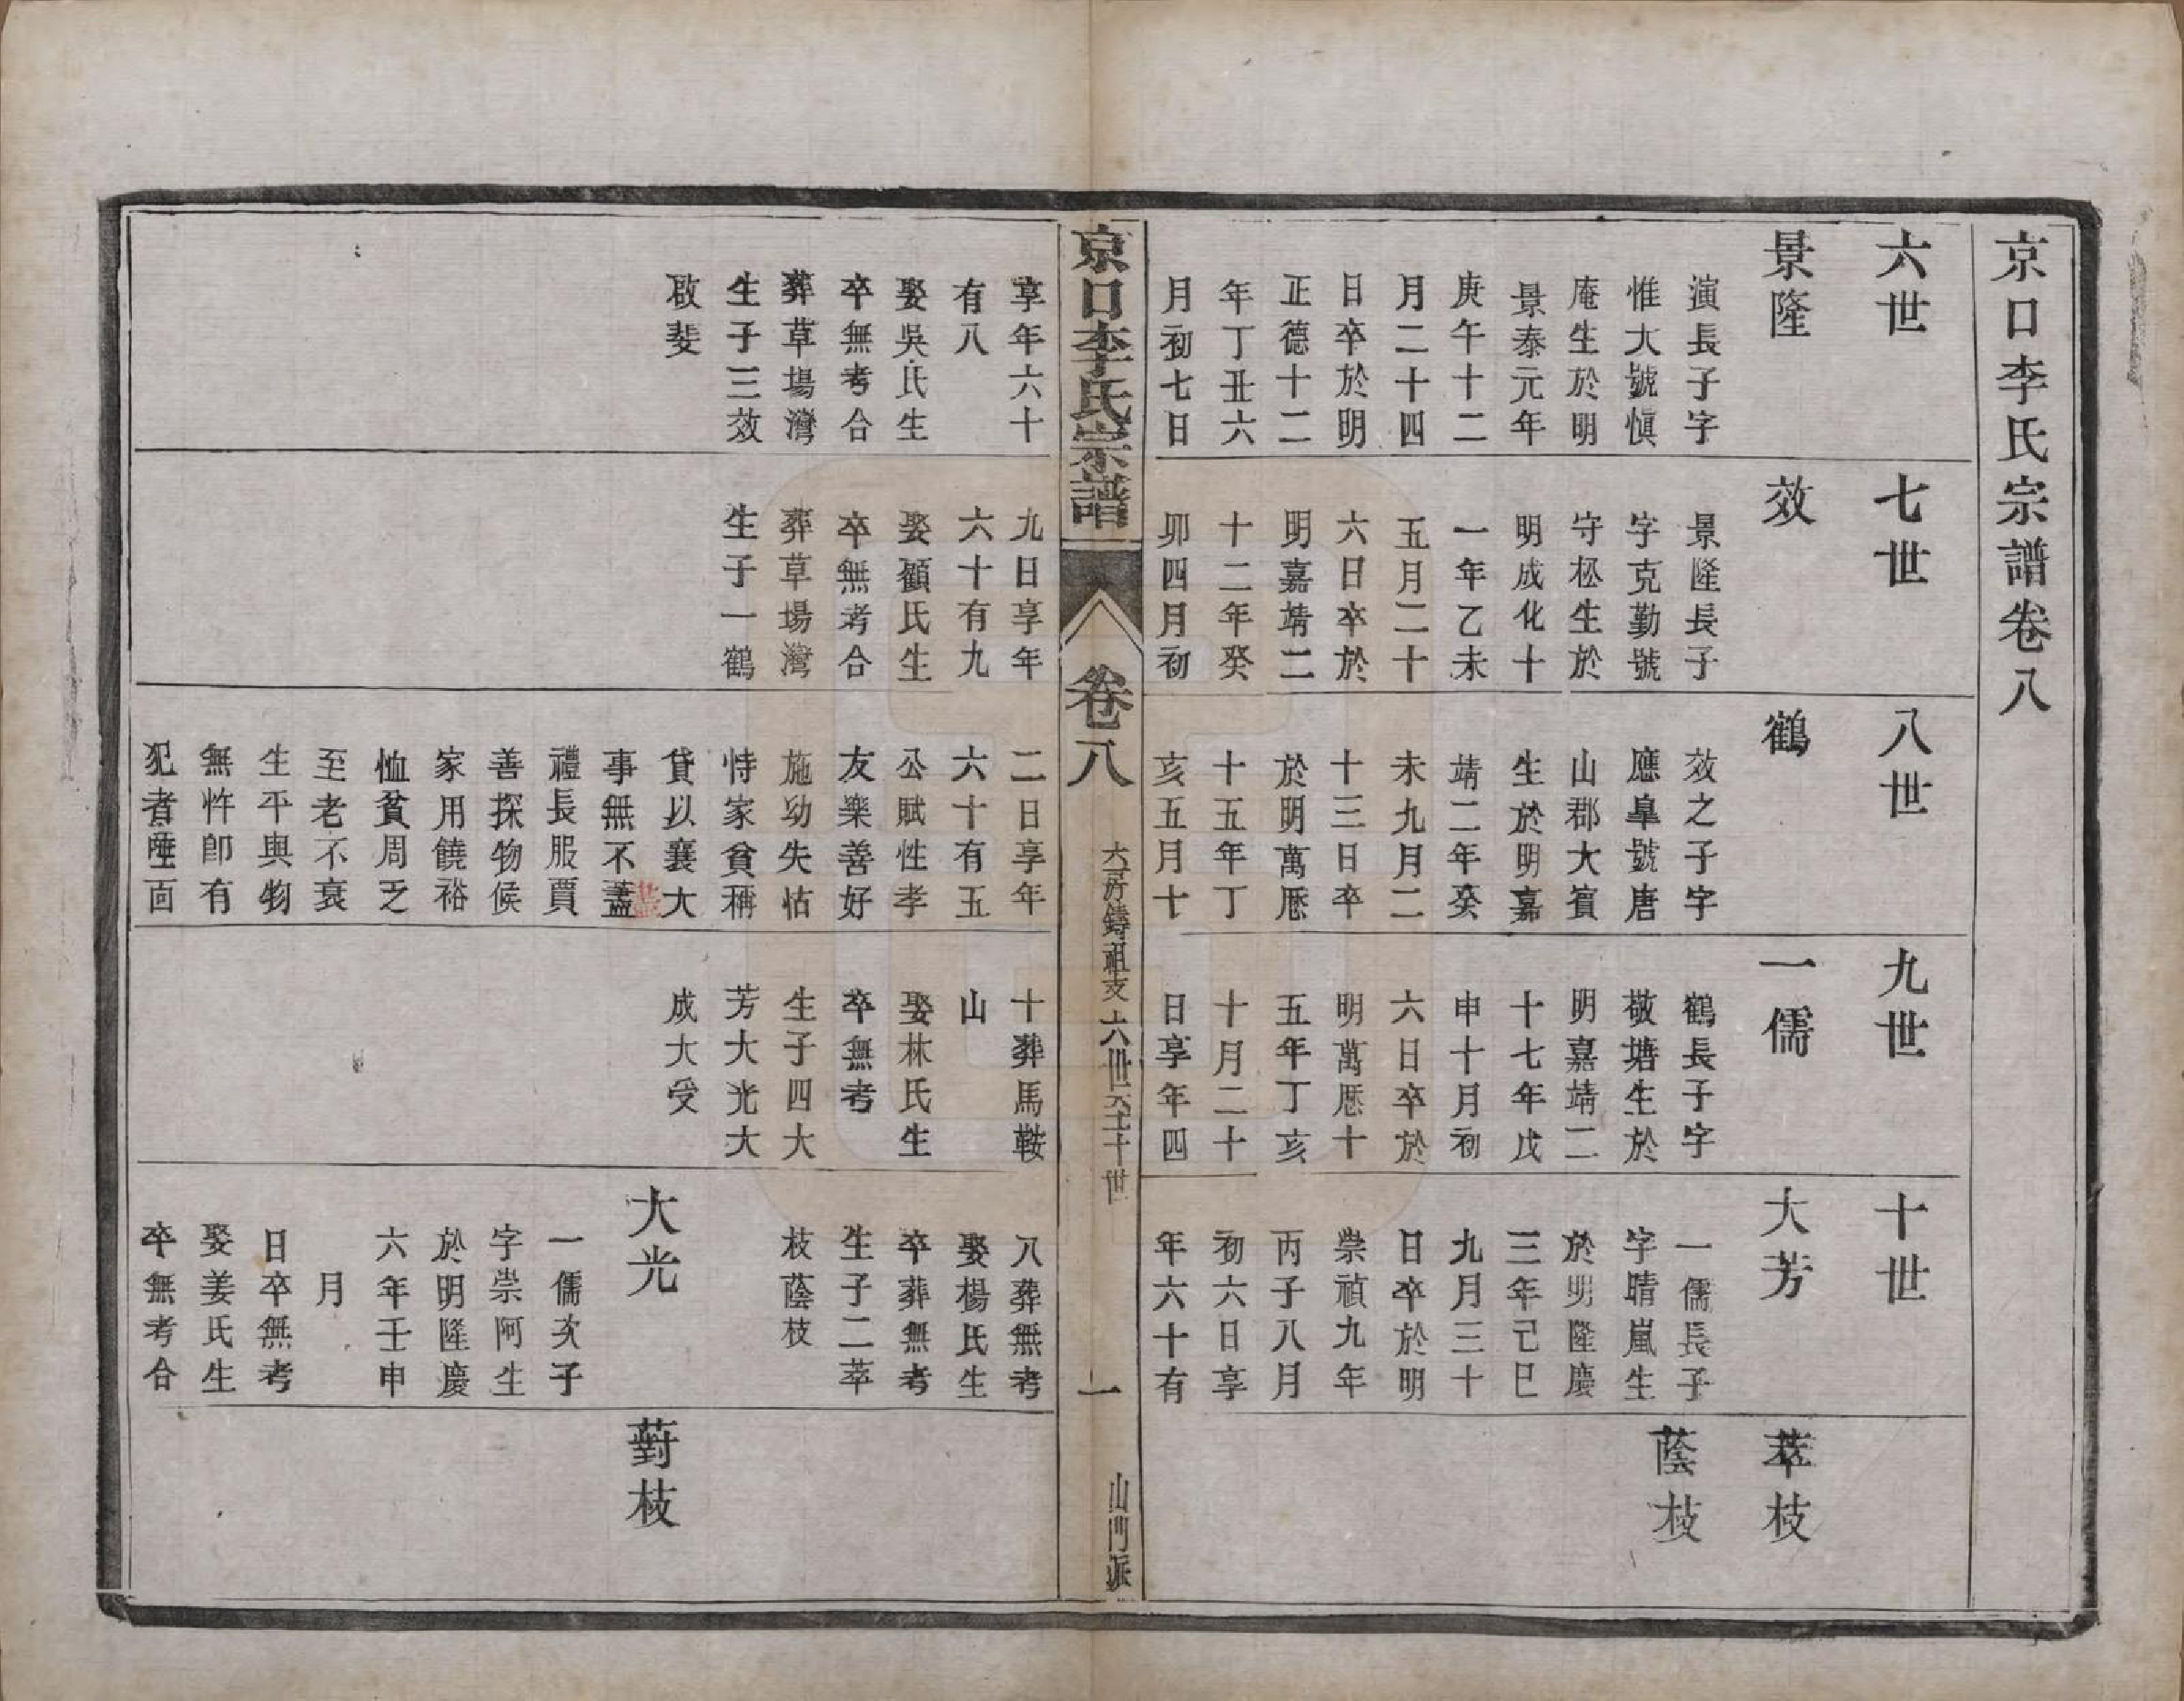 京口李氏宗譜卷八
六世
景隆
演長子字
惟大號愼
庵生於明
景泰元年
庚午十二
月二十四
日卒於明
正德十二
年丁丑六
月初七日
七世
效
景隆長子
字克勤號
守松生於
明成化十
一年乙未
五月二十
六日卒於
明嘉靖二
十二年癸
卯四月初
八世
鶴
效之子字
應臯號唐
山郡大賓
生於明嘉
靖二年癸
未九月二
十三日卒
於明萬厯
十五年丁
亥五月十
九世
一儒
鶴長子字
敬塘生於
明嘉靖二
十七年戊
申十月初
六日卒於
明萬厯十
五年丁亥
十月二十
日享年四
十世
大芳
一儒長子
字晴嵐生
於明隆慶
三年己巳
九月三十
日卒於明
崇禎九年
丙子八月
初六日享
年六十有
萃枝
蔭枝
京口李氏宗譜
卷八
六房鑄祖支
六世六至十世
一
山門派
享年六十
有八
娶吳氏生
卒無考合
葬草場灣
生子三效
啟斐
九日享年
六十有九
娶顧氏生
卒無考合
葬草場灣
生子一鶴
二日享年
六十有五
公賦性孝
友樂善好
施幼失怙
恃家貧稱
貸以襄大
事無不盡
禮長服賈
善探物候
家用饒裕
恤貧周乏
至老不衰
生平與物
無忤卽有
犯者唾面
十葬馬鞍
山
娶林氏生
卒無考
生子四大
芳大光大
成大受
八葬無考
娶楊氏生
卒葬無考
生子二萃
枝蔭枝
大光
一儒次子
字崇阿生
於明隆慶
六年壬申
月
日卒無考
娶姜氏生
卒無考合
葑枝